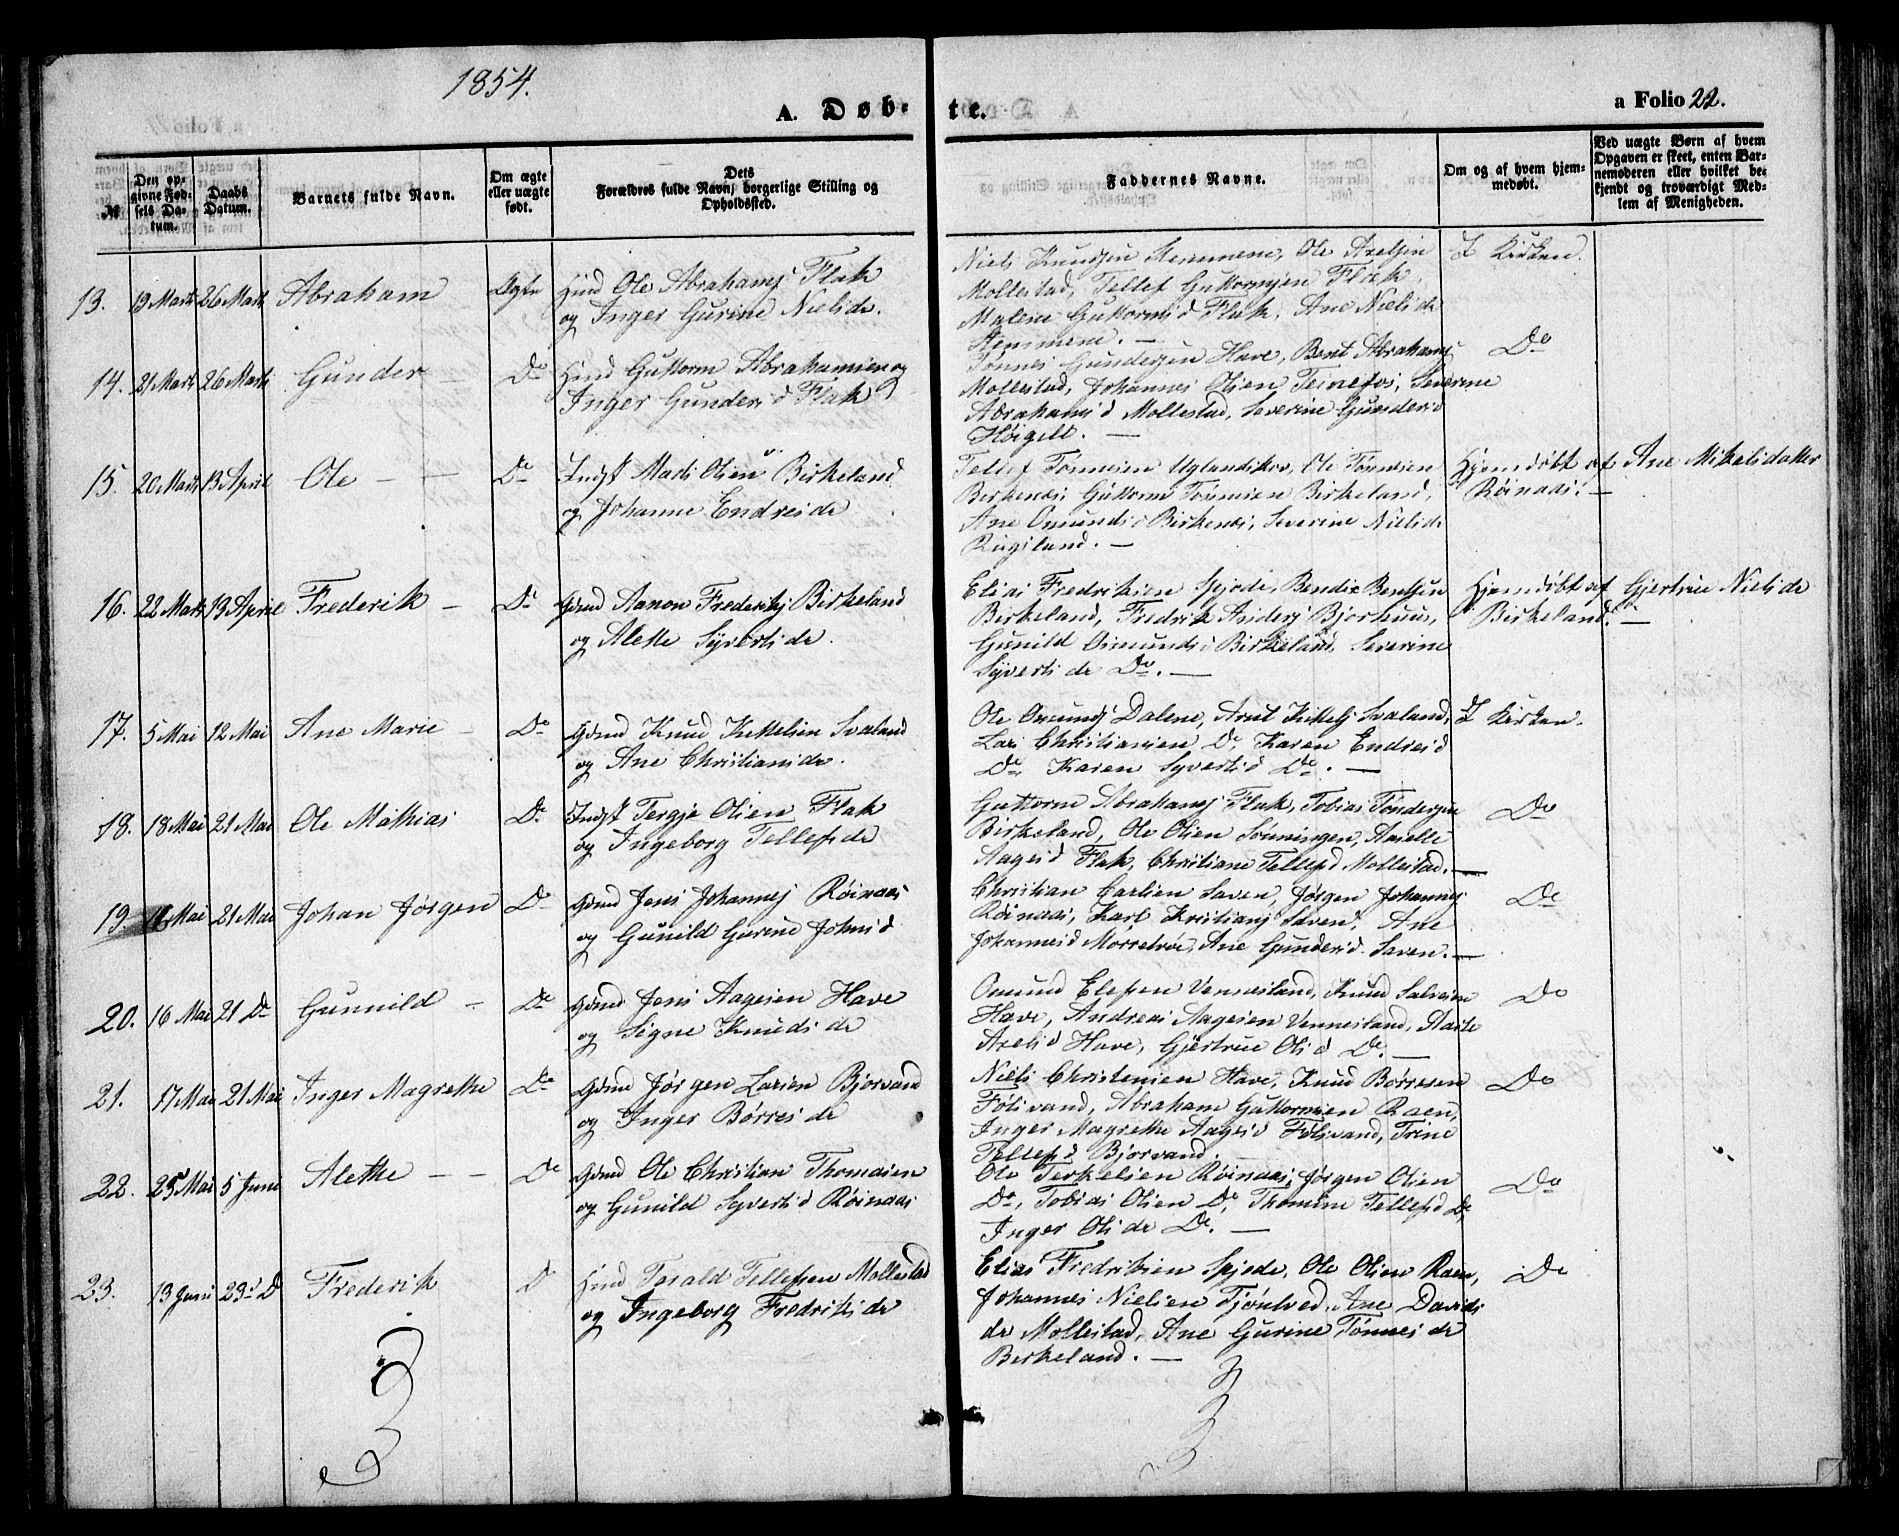 1854.
A. Døb-
te.
a Folio 22.
№
Den op-
givne Fød-
sels Da-
tum.
Daabs
Datum.
Barnets fulde Navn.
Om ægte
eller uægte
født.
Dets
Forældres fulde Navn, borgerlige Stilling og
Opholdssted.
Faddernes Navne.
Om og af hvem hjem-
medøbt.
Ved uægte Børn af hvem
Opgaven er skeet, enten Bar-
nemoderen eller hvilket be-
kjendt og troværdigt Med-
lem af Menigheden.
13. 26 Marts Abraham Ægte Ole Abrahams Flak
og Inger Gurine Nielsdr.
Niels Knudsen Ole Axelsen
Mollestad, Tellef Guttormsen Flak,
Malene Guttormsd Flak, Ane Nielsdr
I Kirken.
14. 21 Marts 26 Marts Gunder — Do Guttorm Abrahamsen og
Inger Gundersd Flak
Tønnes Gundersen Have, Bent Abrahams
Mollestad, Johannes Olsen Teinefos, Severine
Abrahamsd Mollestad, Severine Gundersd
Høigelt. —
Do
15. 20 Marts 13 April Ole — — Do Indst Mads Olsen Birkeland
og Johanne Endresdr
Tellef Tønnesen Uglandskov, Ole Tønnesen
Birkenæs, Guttorm Tønnesen Birkeland,
Ane Omundsd Birkenæs, Severine Nielsdr
Rugsland. —
Hjemdøbt af Ane Mikelsdatter
Røinaas. —
16. 22 Marts 13 April Frederik — Do Gdmd Aanon Frederiks Birkeland
og Alette Syvertsdr.
Elias Fredriksen Spjode, Bendix Bentsen
Birkeland, Fredrik Anders Bjorhuus,
Gunild Omundsd Birkeland, Severine
Syvertsdr Do. —
Hjemdøbt af Gjertrue Nielsdr
Birkeland. —
17. 5 Mai 12 Mai Ane Marie — Do Gdmd Knud Kittelsen Svaland
og Ane Christiansdr.
Ole Omunds Dalene, Arnt Kittels Svaland,
Lars Christiansen Do, Karen Endresd
Do, Karen Syvertsd Do. —
I Kirken.
18. 18 Mai 21 Mai Ole Mathias Do Indst Tergje Olsen Flak
og Ingeborg Tellefsdr
Guttorm Abrahams Flak, Tobias
Birkeland, Ole Olsen Sønningen,
Aagesd Flak, Christiane Tellefsd Mollestad. —
Do
19. Mai 21 Mai Johan Jørgen Do Gdmd Jens Johannes Røinaas
og Gunild Gurine Johnsd
Christian Carlsen Saven, Jørgen Johannes
Røinaas, Karl Kristians Saven, Ane
Johannesd Ane Gundersd Saven. —
Do
20. 16 Mai 21 Do Gunnild — Do Gdmd Jens Aagesen Have
og Signe Knudsdr
Omund Elefsen Vennesland, Knud Salvesen
Have, Andreas Aagesen Vennesland,
Axelsd Have, Gjertrue Olsd Do. —
Do
21. 17 Mai 21 Mai Inger Magrethe Do Gdmd Jørgen Larsen Bjorvand
og Inger Børresdr
Niels Christensen Have, Knud Børresen
Følsvand, Abraham Guttormsen Raen,
Inger Magrethe Aagesd Følsvand, Trine
Tellefsd Bjorvand. —
Do
22. 25 Mai 5 Juni Alethe — — Do Gdmd Ole Christian Thomasen
og Gunild Syvertsd Røinaas
Ole Terkelsen Røinaas, Jørgen Olsen
Do, Tobias Olsen Do, Thomine Tellefsd Do,
Inger Olsdr Do. —
Do
23. 13 Juni 23d D Frederik D Torald Tellefsen Mollestad
og Ingeborg Fredriksdr
Elias Fredriksen Spjode, Ole Olsen Raen,
Johannes Nielsen Tjønhved, Ane Davids
dr Mollestad, Ane Gurine Tønnesdr
Birkeland. —
Do